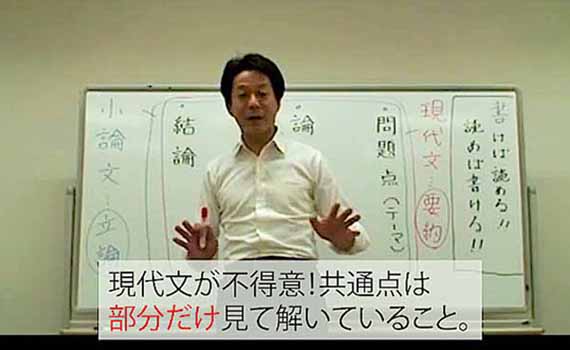 書けば読める!!
読めば書ける!!
現代文…要約
・問題点(=テーマ)
・論
・結論
小論文…立論
現代文が不得意!共通点は
部分だけ見て解いていること。